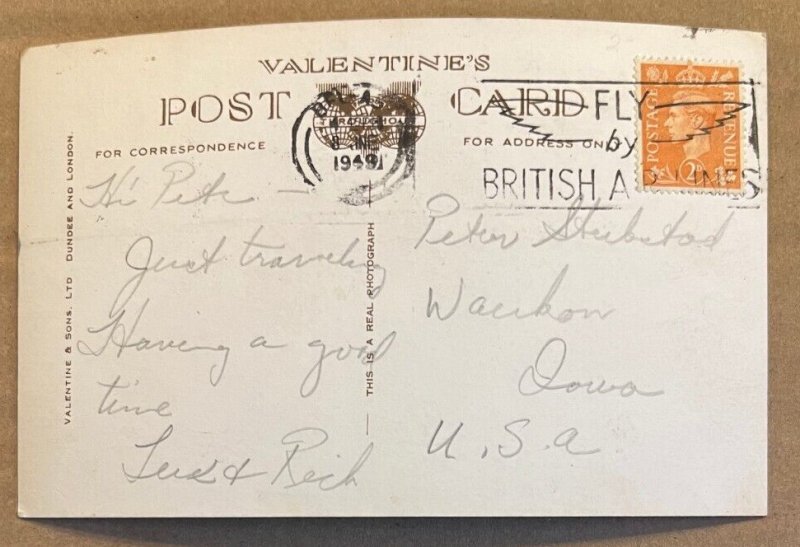 VALENTINE'S
POST CARD
FOR CORRESPONDENCE
FOR ADDRESS ON
1949
FLY
by
BRITISH
POSTAGE
REVENUE
VALENTINE & SONS, LTD DUNDEE AND LONDON.
THIS IS A REAL PHOTOGRAPH
Hi Pete —
Just traveling
Having a good
time
& Rich
Peter
Waukon
Iowa
U.S.A